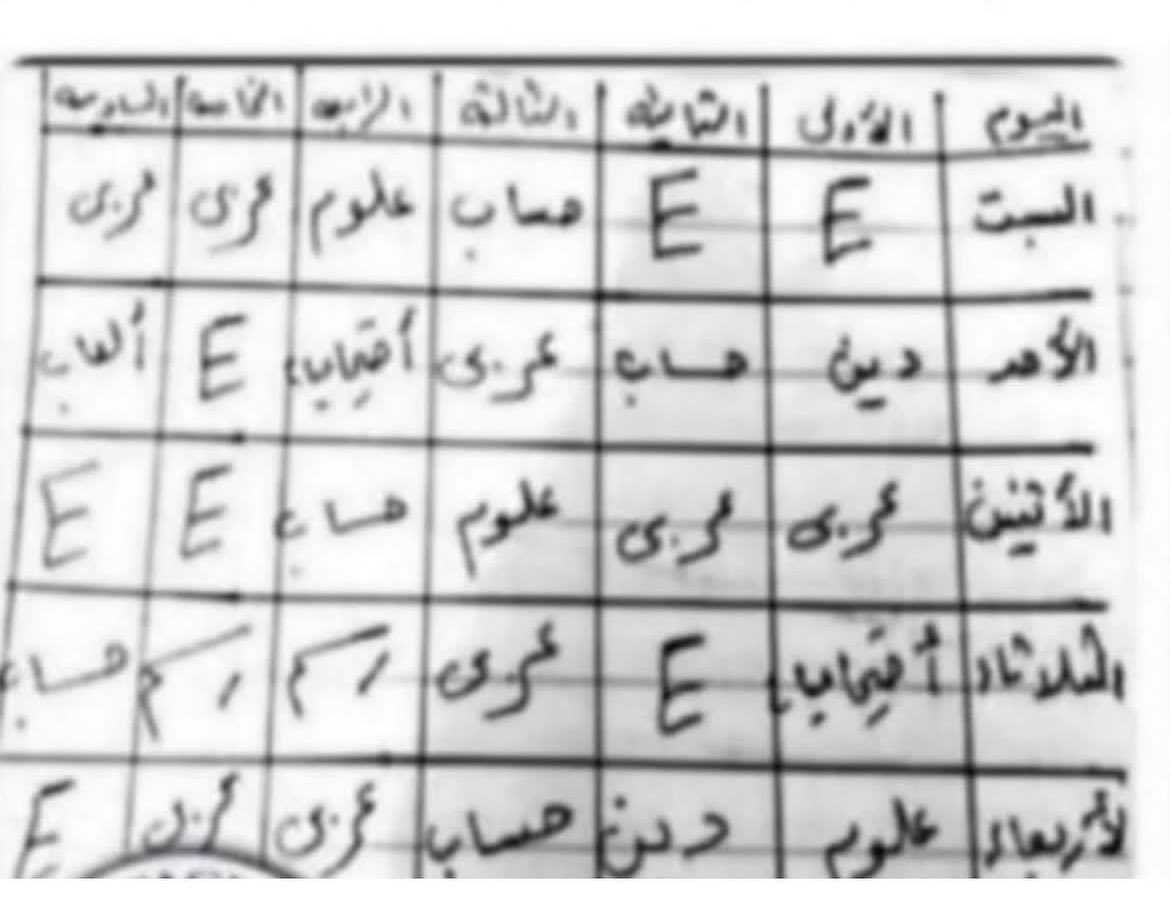 اليوم الأولى الثانية الثالثة الرابعة الخامسة السادسة
السبت E E حساب علوم عربى عربى
الأحد دين حساب عربى E ألعاب
الأثنين عربى عربى علوم حساب E E
الثلاثاء E عربى رسم رسم حساب
الأربعاء علوم دين حساب عربى عربى E